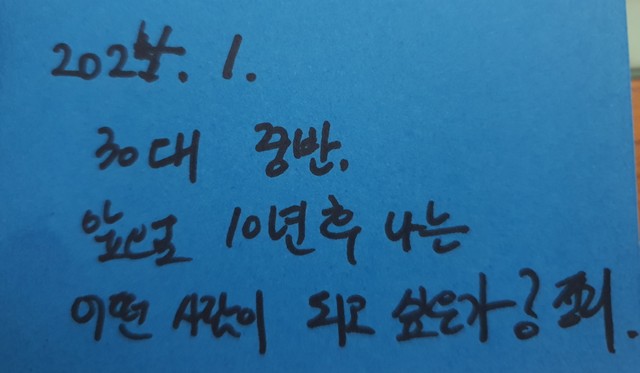 2025. 1.
30대 중반.
앞으로 10년 후 나는
어떤 사람이 되고 싶은가? 정리.